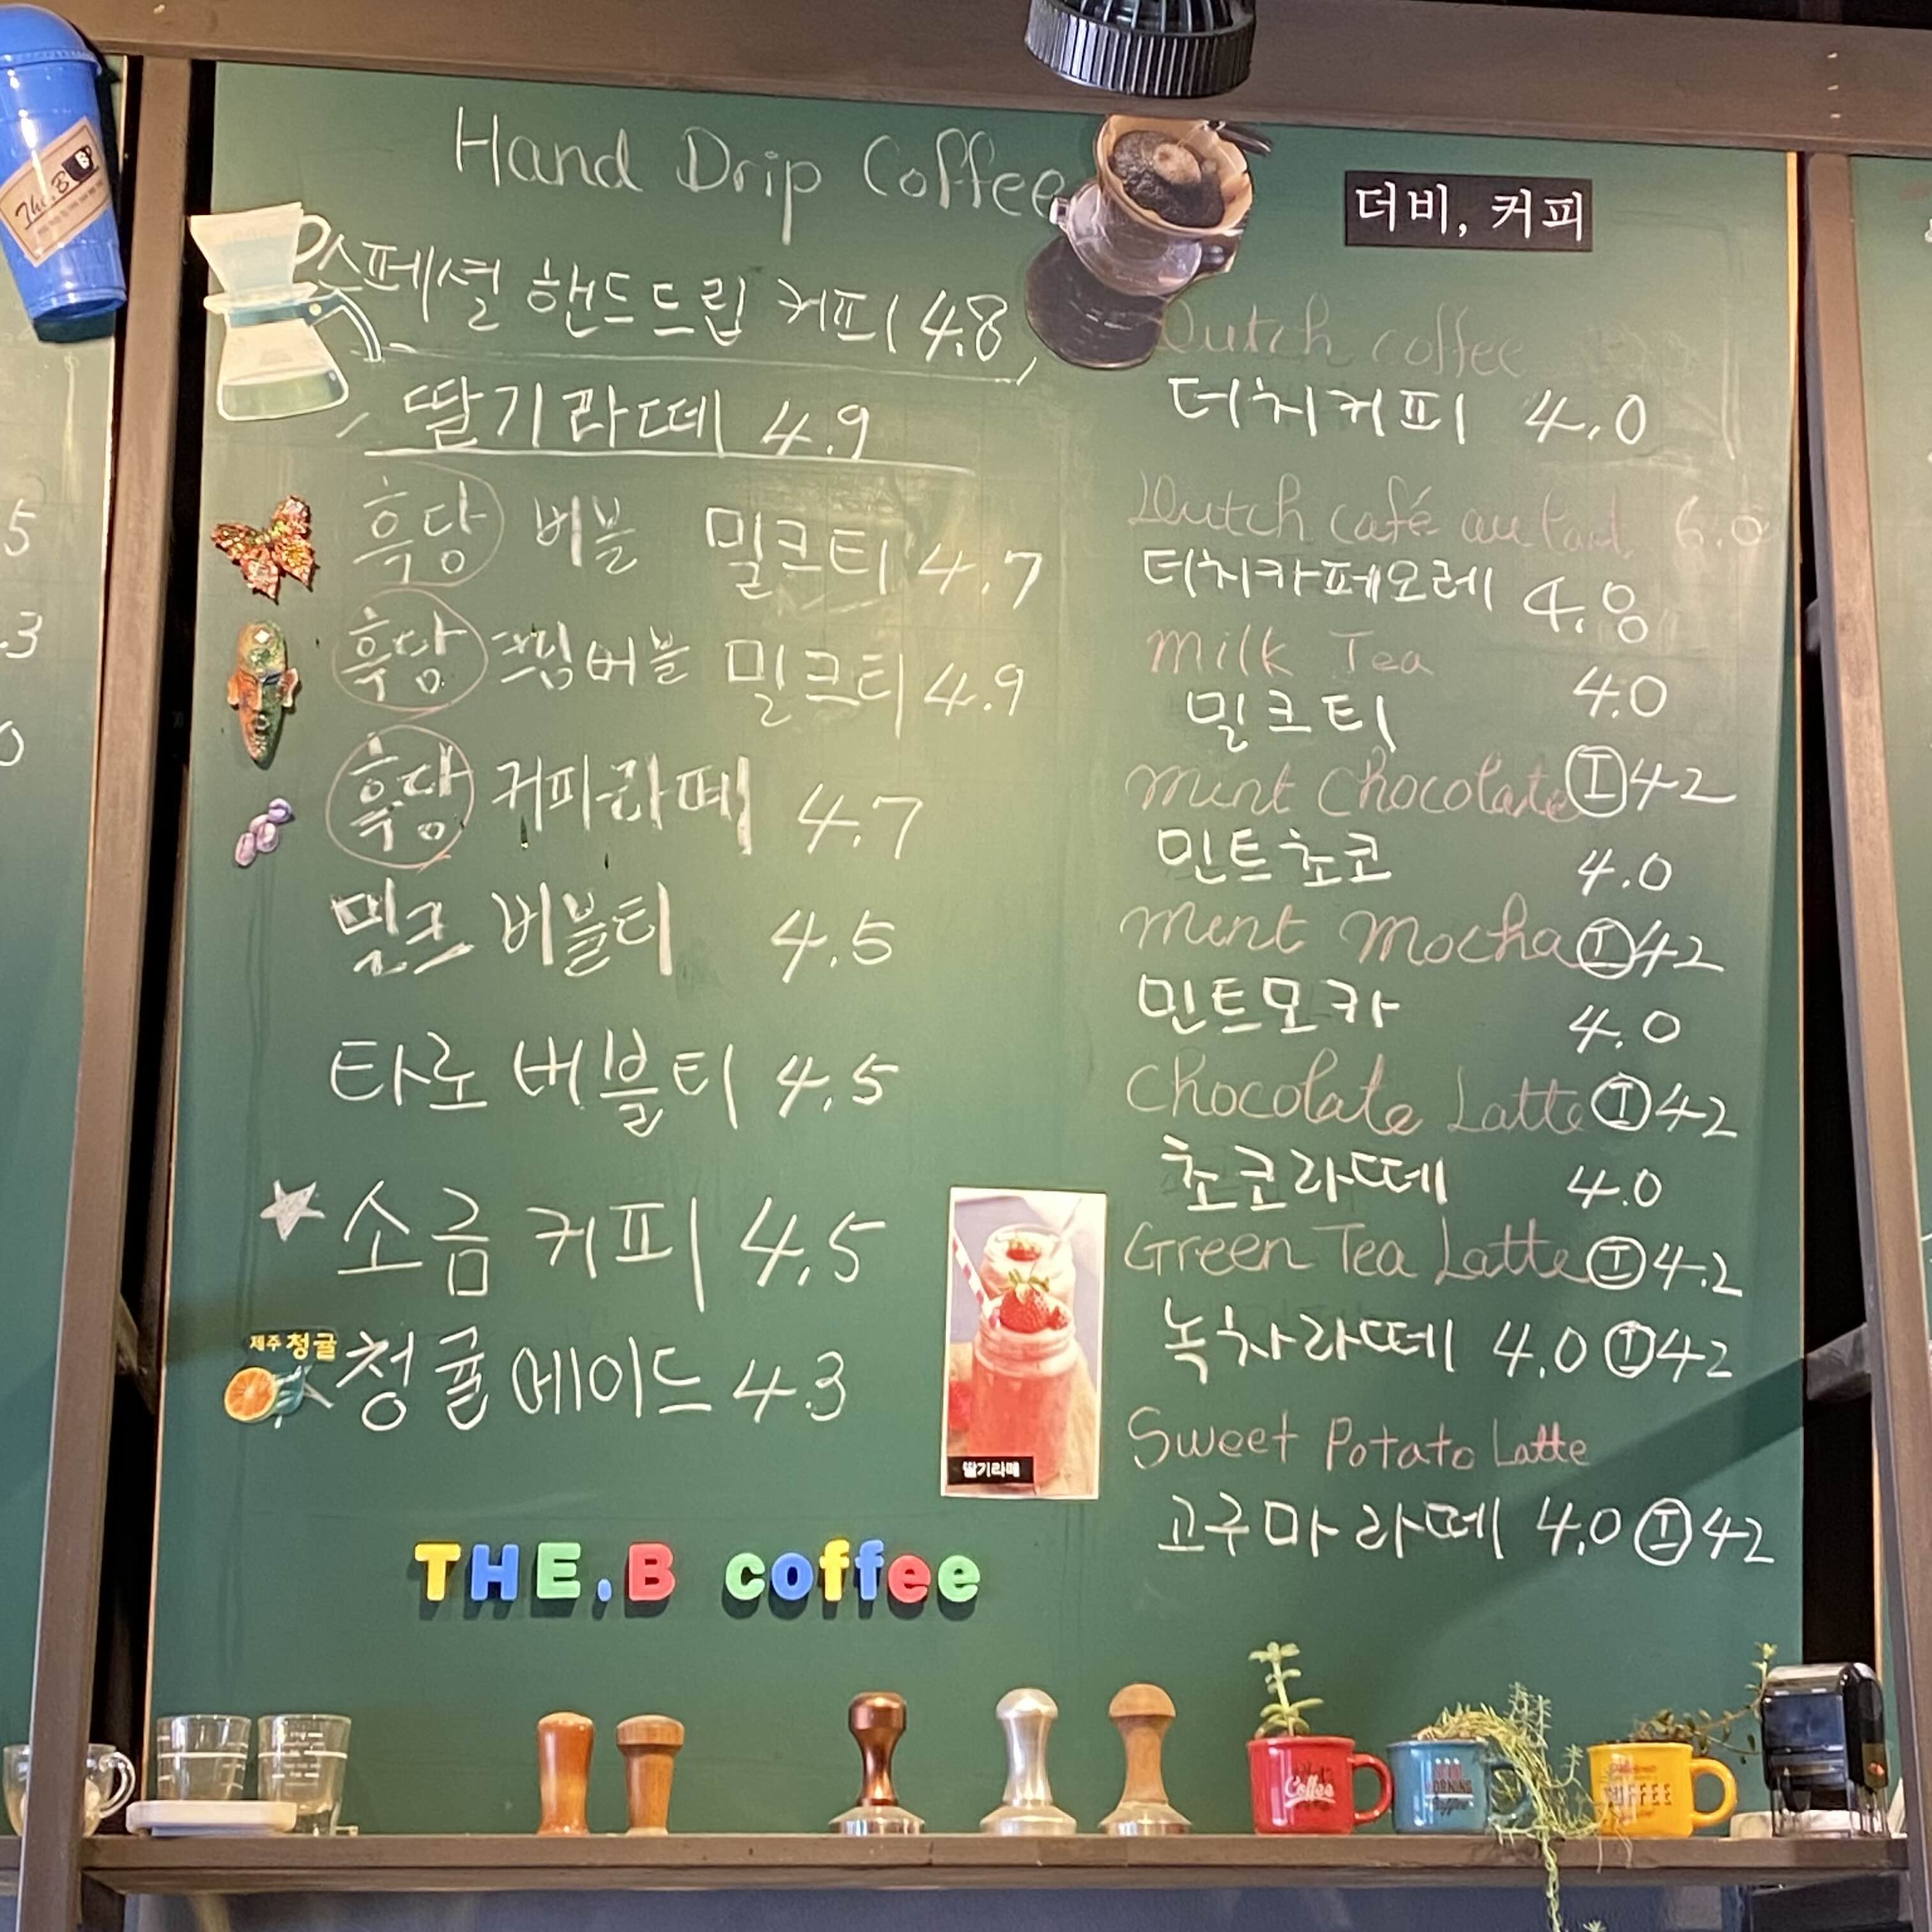 The.B
B
Hand Drip Coffee
스페셜 핸드드립 커피 4.8
딸기라떼 4.9
흑당 버블 밀크티 4.7
흑당 찐버블 밀크티 4.9
흑당 커피라떼 4.7
밀크 버블티 4.5
타로 버블티 4.5
소금 커피 4.5
제주 청귤
청귤에이드 4.3
딸기라떼
THE.B coffee
더비, 커피
Dutch coffee
더치커피 4.0
Dutch café au lait 6.0
더치카페오레 4.8
Milk Tea
밀크티 4.0
Mint Chocolate Ⓘ 4.2
민트초코 4.0
Mint Mocha Ⓘ 4.2
민트모카 4.0
Chocolate Latte Ⓘ 4.2
초코라떼 4.0
Green Tea Latte Ⓘ 4.2
녹차라떼 4.0 Ⓘ 4.2
Sweet Potato Latte
고구마라떼 4.0 Ⓘ 4.2
5
.3
0
Coffee
MORNING
COFFEE